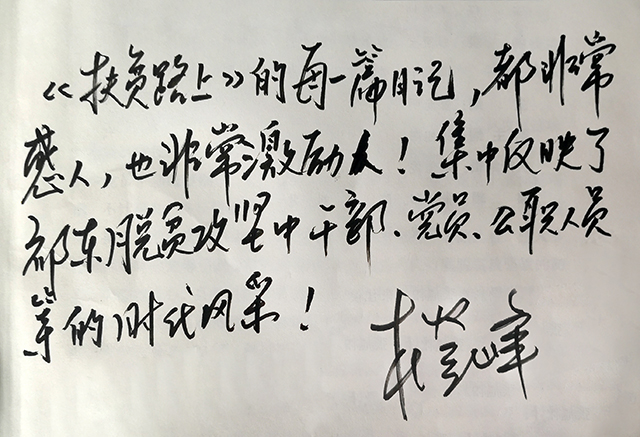 《扶贫路上》的每一篇日记，都非常
感人，也非常激励人！集中反映了
祁东脱贫攻坚中干部、党员、公职人员
等的时代风采！